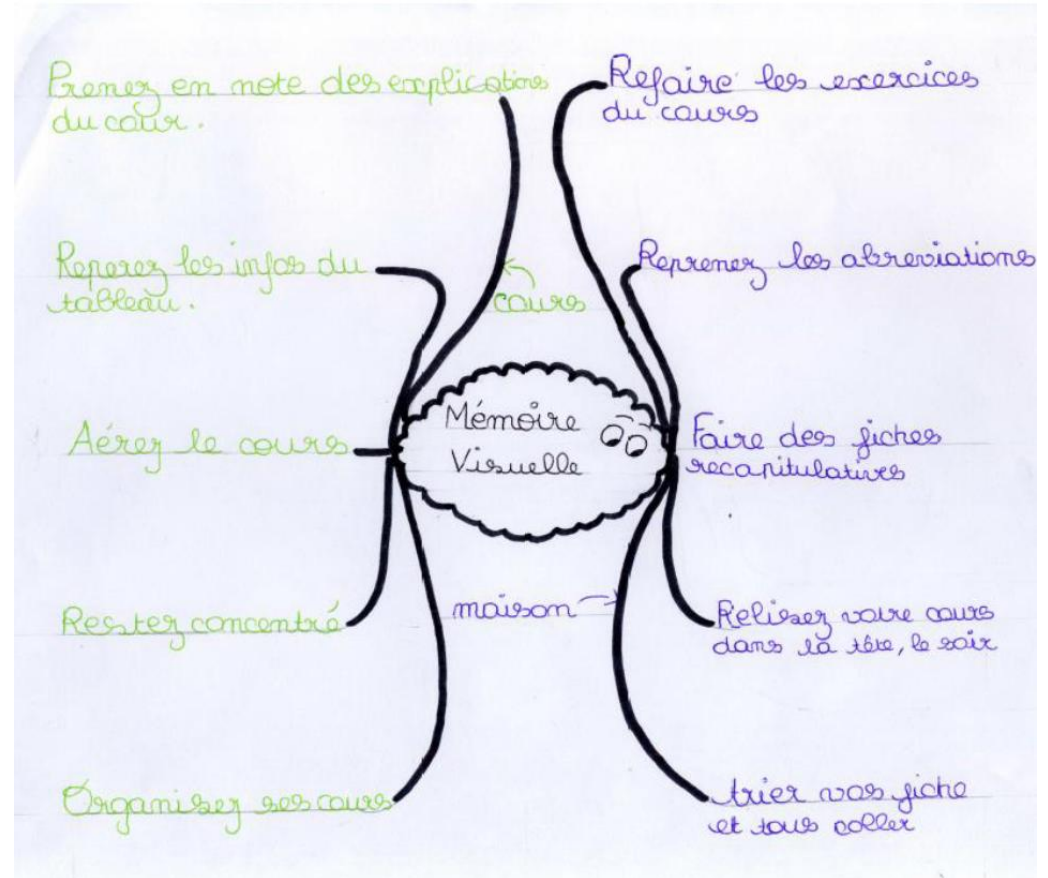 Prenez en note des explications
du cour.
Reperez les infos du
tableau.
Aérez le cours
Restez concentré
Organisez ses cours
cours
Mémoire
Visuelle
maison
Refaire les excercices
du cours
Reprenez les abreviations
Faire des fiches
recapitulatives
Relisez votre cours
dans la tête, le soir
trier vos fiche
et tous coller